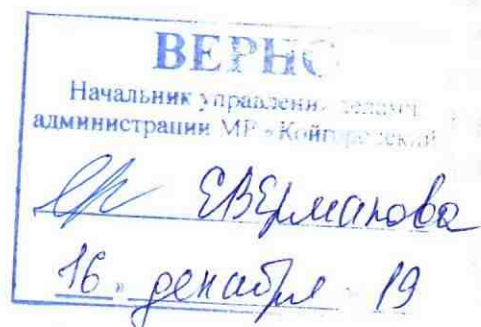 ВЕРНО
Начальник управления делами
администрации МР «Койгородский
Е.В.Ермакова
16 декабря 19